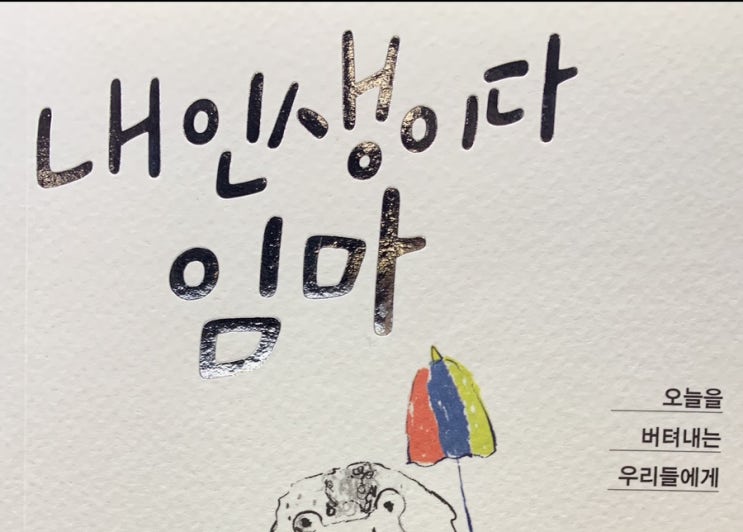 내 인생이다
임마
오늘을
버텨내는
우리들에게